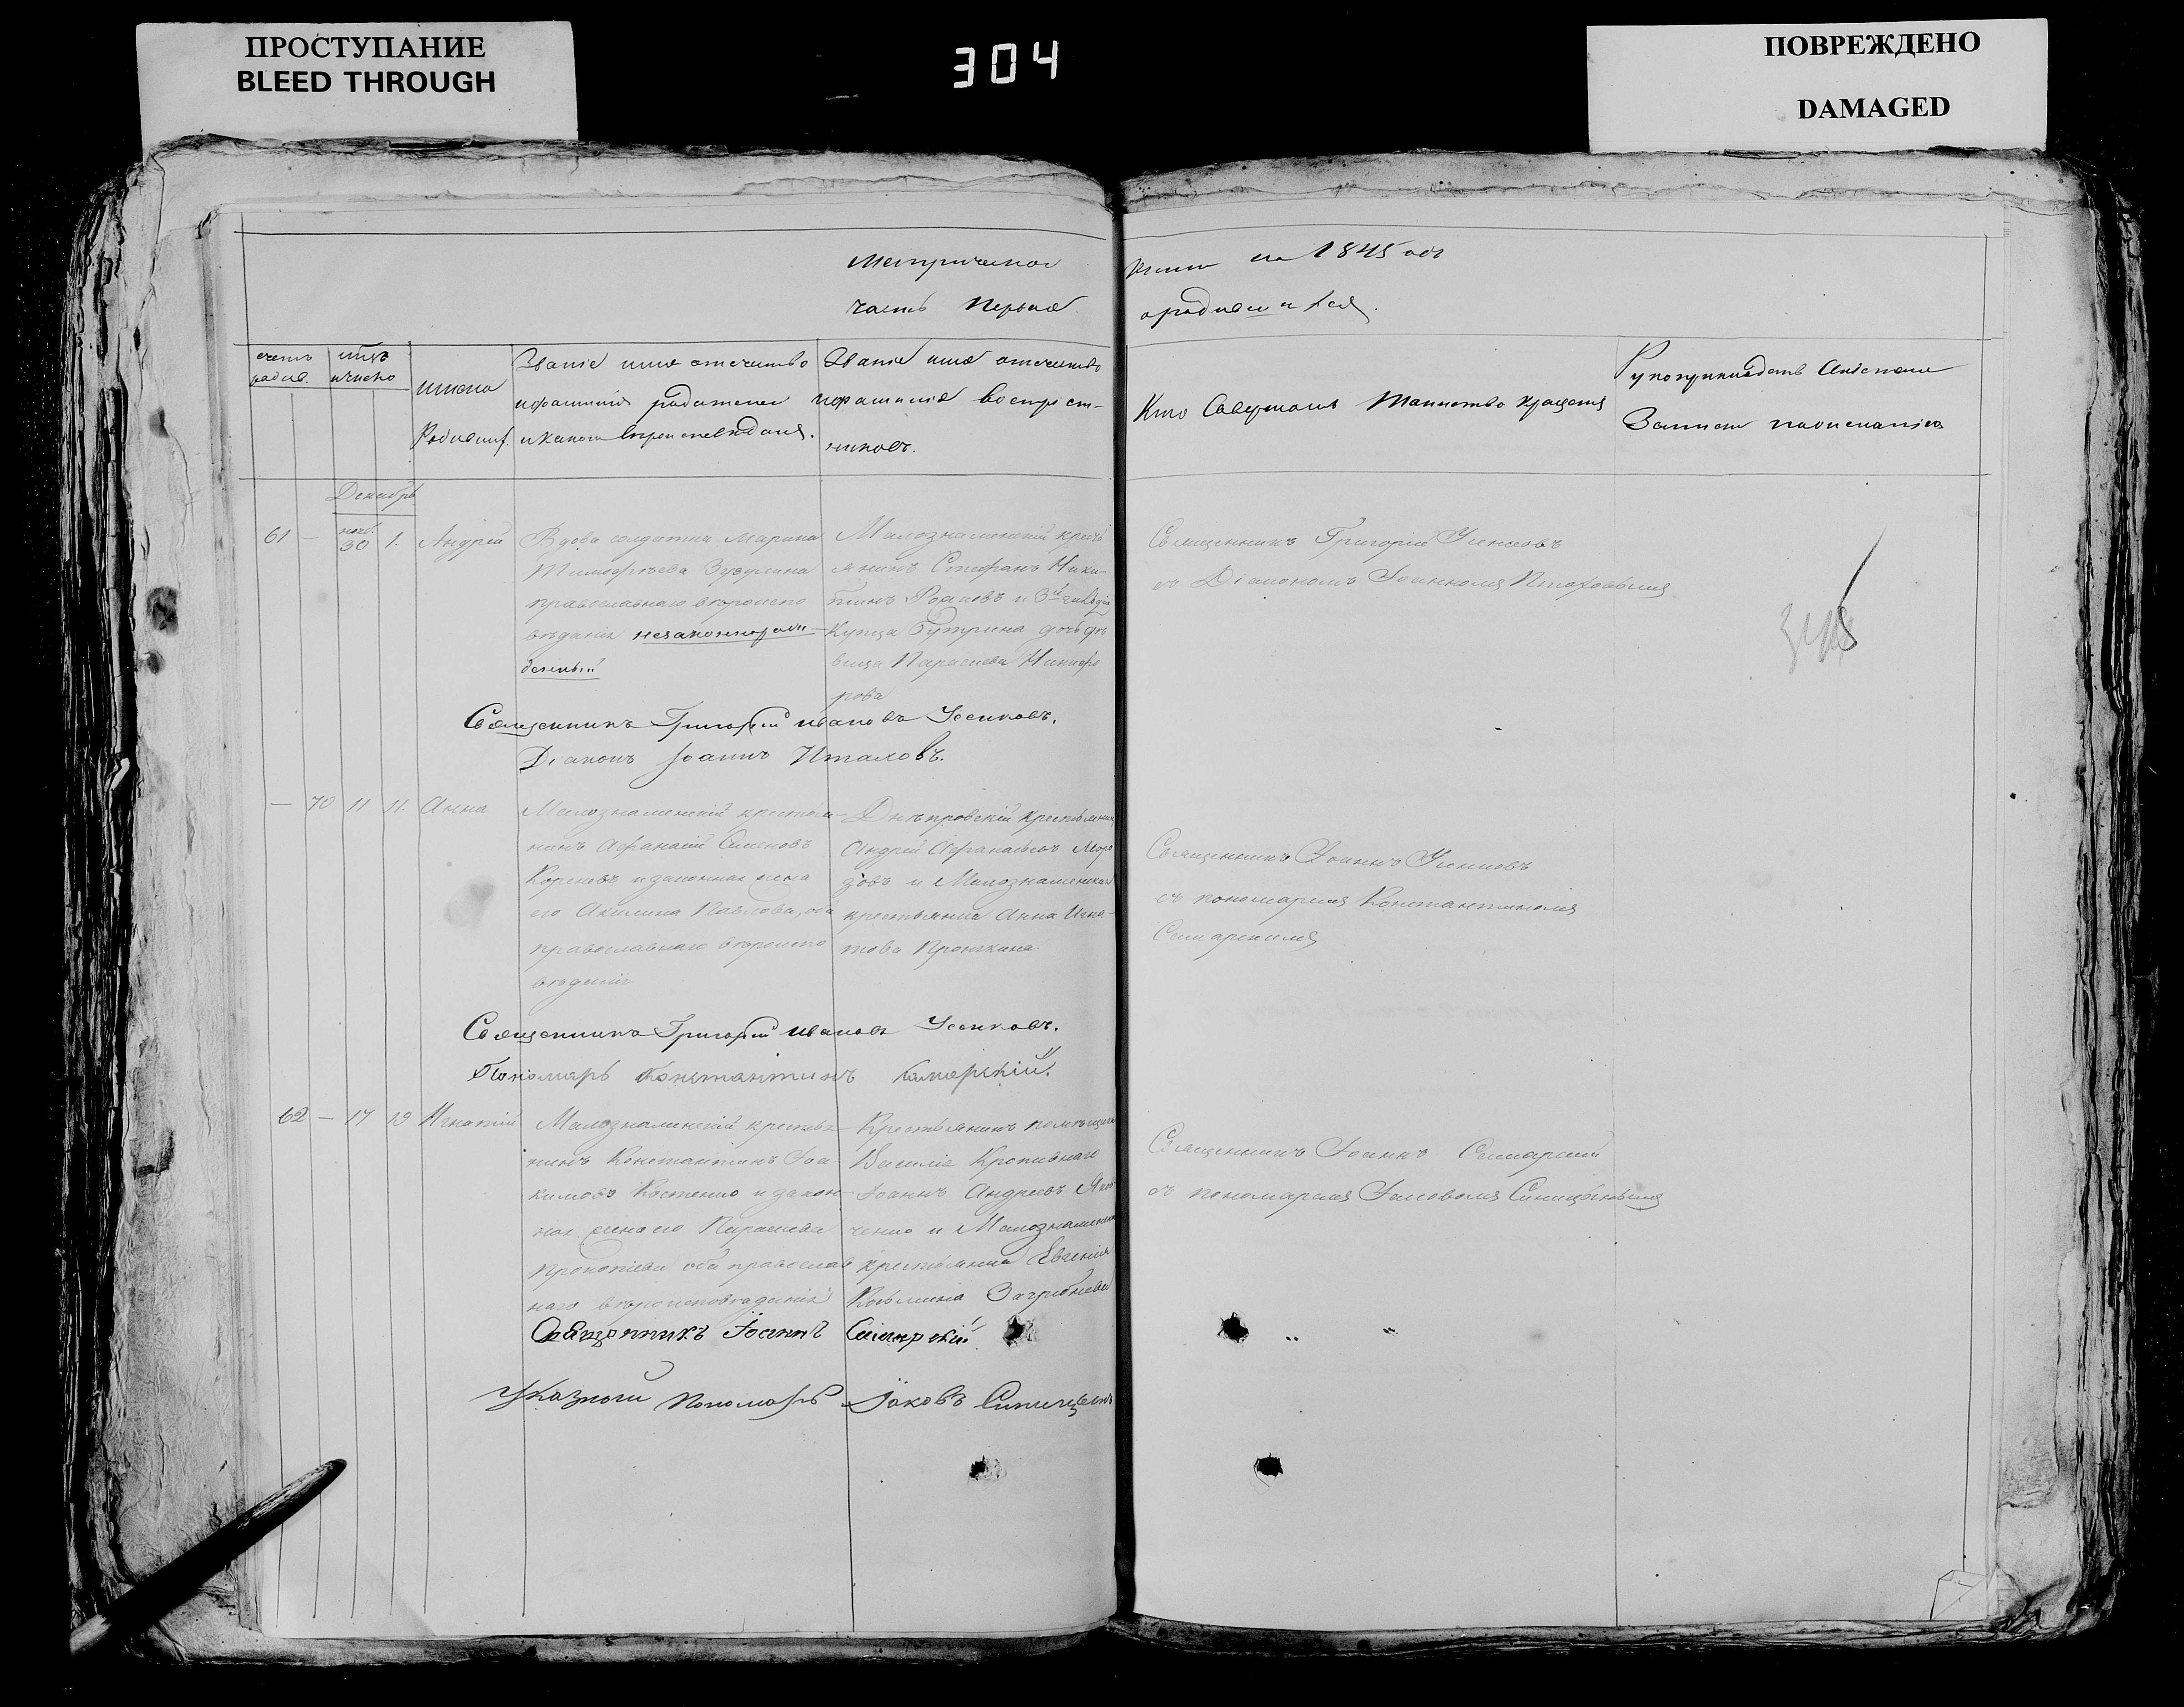 ПРОСТУПАНИЕ
BLEED THROUGH
304
ПОВРЕЖДЕНО
DAMAGED
Метрической
часть первая
книги на 1845 годъ
о родившихся.
счетъ родив.
мѣсяцъ и число
имена
Родивш.
Званіе имя отечество
и фамилія родителей
и какого вѣроисповѣданія.
Званіе имя отечество
и фамилія воспріем-
никовъ.
Кто Совершалъ Таинство крещенія
Рукоприкладство свидѣтелей
Записи по желанію
Декабрь
61 — нояб. 30 1. Андрей
Вдова солдатка Марина
Тимофѣева
православнаго вѣроиспо
вѣданія незаконнорож-
денный
Малознаменскій кресть
янинъ Стефанъ Ники-
тинъ и 3й гильдіи
Купца дочь дѣ
вица Параскева Никифо
рова
Священникъ Григорій Усенковъ
съ Діакономъ Іоанномъ Птаховымъ
Священникъ Григорій Ивановъ Усенковъ.
Діаконъ Іоаннъ Птаховъ.
— 70 11 11. Анна
Малознаменскій крестья-
нинъ Афанасій Семеновъ
Кореневъ и законная жена
его Акилина Павлова, оба
православнаго вѣроиспо
вѣданія
Днѣпровскій крестьянинъ
Андрей Афанасьевъ Моро
зовъ и Малознаменская
крестьянка Анна Игна-
това Пронькина
Священникъ Іоаннъ Усенковъ
съ пономаремъ Константиномъ
Самарскимъ
Священникъ Григорій Ивановъ Усенковъ.
Пономарь Константинъ Самарскій.
62 — 17 19 Игнатій
Малознаменскій крестья-
нинъ Константинъ Іоа-
кимовъ Костенко и закон-
ная жена его Параскева
Прокопіева оба православ
наго вѣроисповѣданія
Крестьянинъ помѣщика
Василія Кропивнаго
Іоаннъ Андреевъ
ченко и Малознаменская
крестьянка Евгенія
Козьмина
Священникъ Іоаннъ Самарскій
съ пономаремъ Іаковомъ Синицынымъ
Священникъ Іоаннъ Самарскій
Указной Пономарь Іаковъ Синицынъ